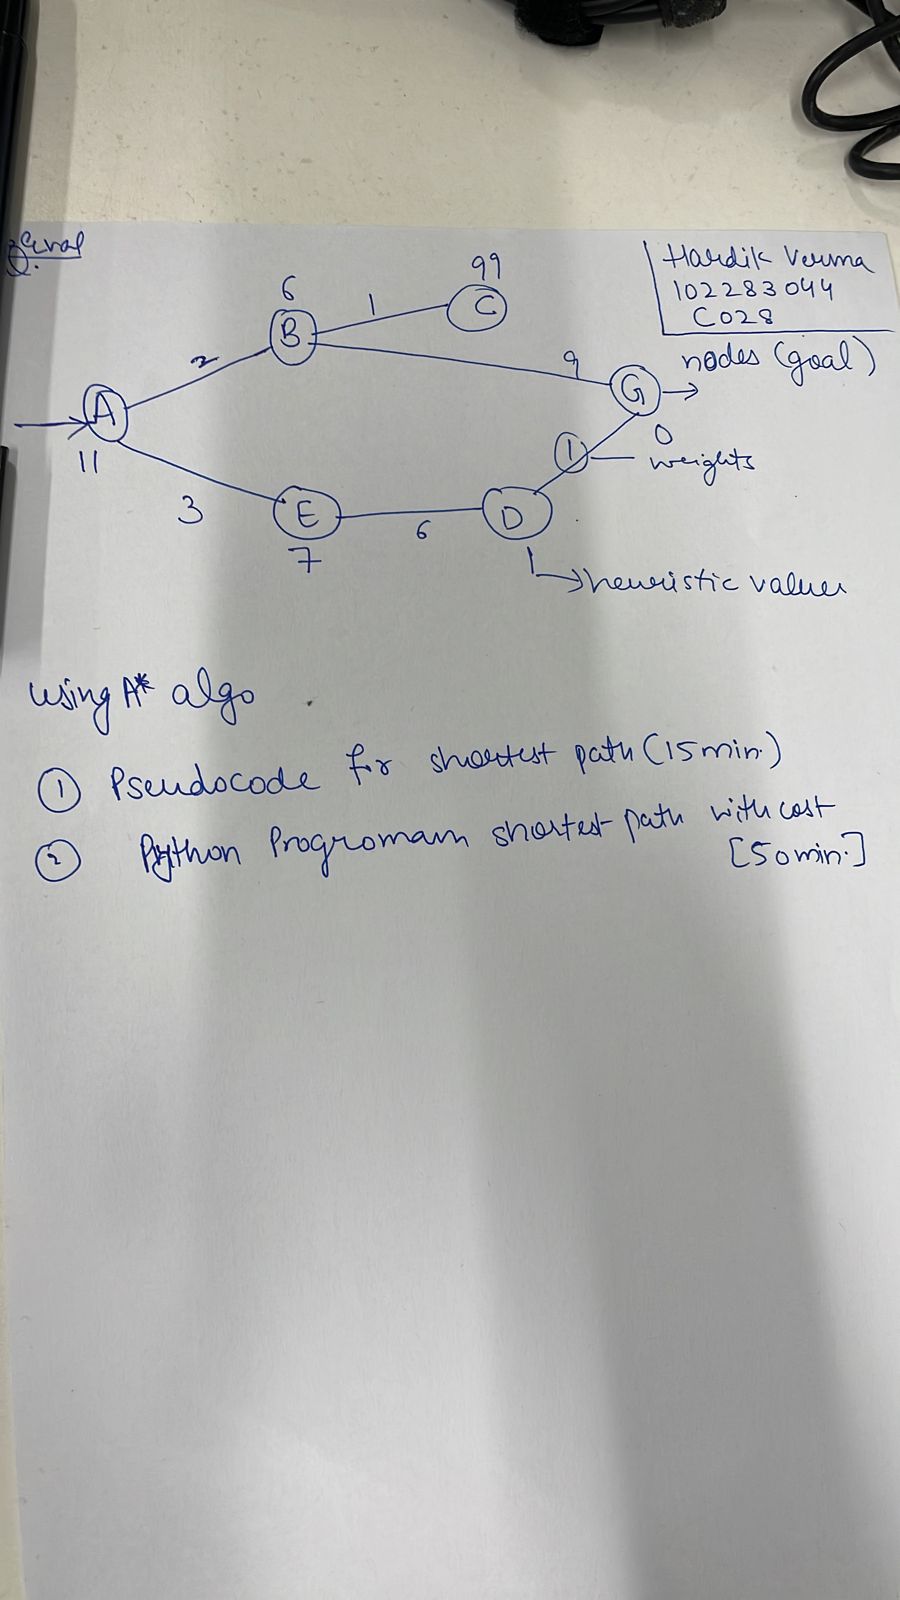 Eval
Q.
Hardik Verma
102283044
C028
nodes (goal)
99
6
1
C
B
2
9
G
A
0
11
1
weights
3
E
6
D
7
1
heuristic values
using A* algo
1 Pseudocode for shortest path (15 min.)
2 Python Progromam shortest path with cost
[50 min.]